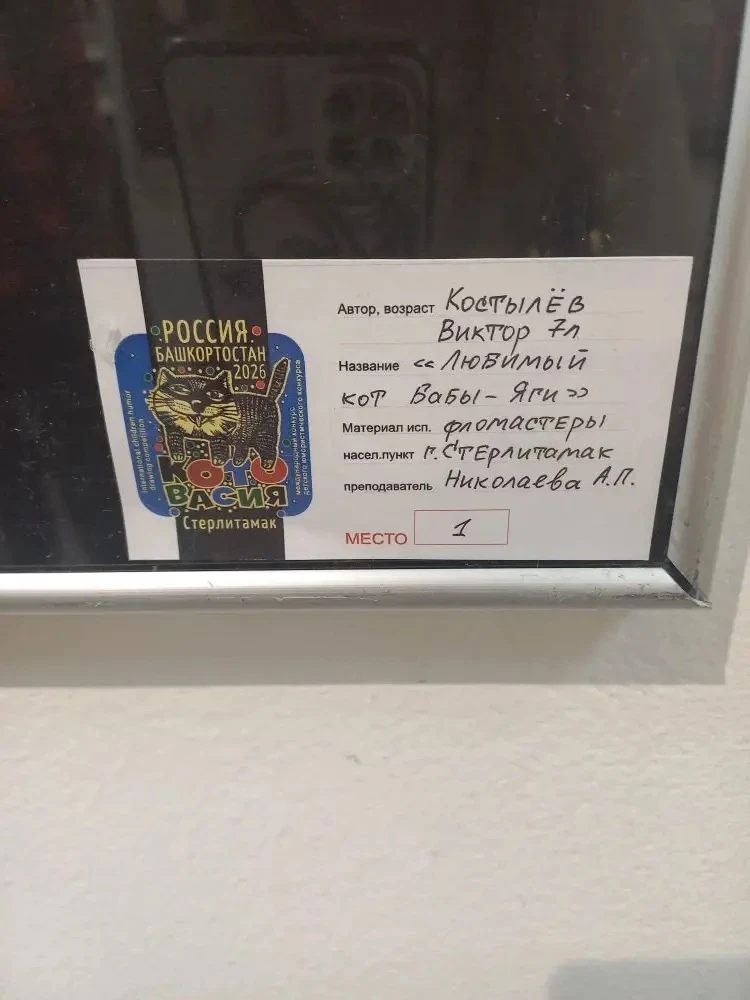 РОССИЯ
БАШКОРТОСТАН
2026
international children humor
drawing competition
международный конкурс
детского юмористического конкурса
КОТО
ВАСИЯ
Стерлитамак
Автор, возраст Костылёв
Виктор 7л
Название «Любимый
кот Бабы-Яги»
Материал исп. фломастеры
насел.пункт г.Стерлитамак
преподаватель Николаева А.П.
МЕСТО 1